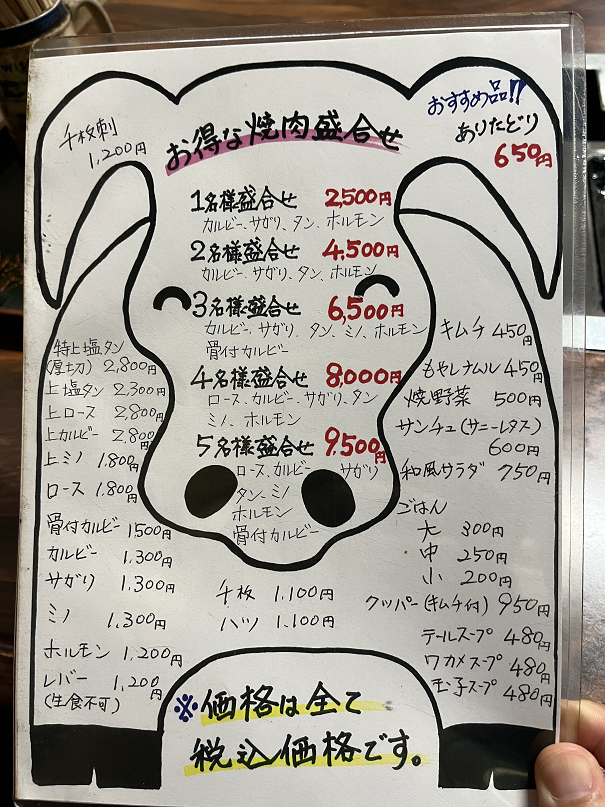 千枚刺
1,200円
お得な焼肉盛合せ
おすすめ品!!
ありたどり
650円
1名様盛合せ 2,500円
カルビー、サガリ、タン、ホルモン
2名様盛合せ 4,500円
カルビー、サガリ、タン、ホルモン
3名様盛合せ 6,500円
カルビー、サガリ、タン、ミノ、ホルモン
骨付カルビー
4名様盛合せ 8,000円
ロース、カルビー、サガリ、タン
ミノ、ホルモン
5名様盛合せ 9,500円
ロース、カルビー サガリ
タン、ミノ
ホルモン
骨付カルビー
特上塩タン
(厚切) 2,800円
上塩タン 2,300円
上ロース 2,800円
上カルビー 2,800円
上ミノ 1,800円
ロース 1,800円
骨付カルビー 1,500円
カルビー 1,300円
サガリ 1,300円
ミノ 1,300円
ホルモン 1,200円
レバー 1,200円
(生食不可)
千枚 1,100円
ハツ 1,100円
キムチ 450円
もやしナムル 450円
焼野菜 500円
サンチュ(サニーレタス)
600円
和風サラダ 750円
ごはん
大 300円
中 250円
小 200円
クッパー(キムチ付) 950円
テールスープ 480円
ワカメスープ 480円
玉子スープ 480円
※価格は全て
税込価格です。